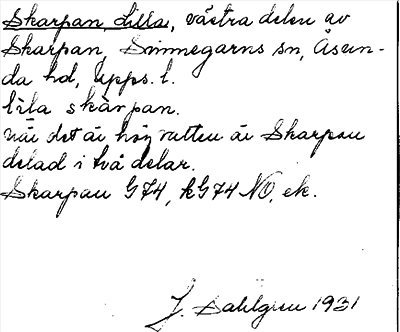 Skarpan, Lilla, västra delen av
Skarpan, Svinnegarns sn, Åsun-
da hd, Upps. l.
lila skàrpan.
när det är hög vatten är Skarpan
delad i två delar.
Skarpan G74, kG74 NO, ek.
J. Dahlgren 1931